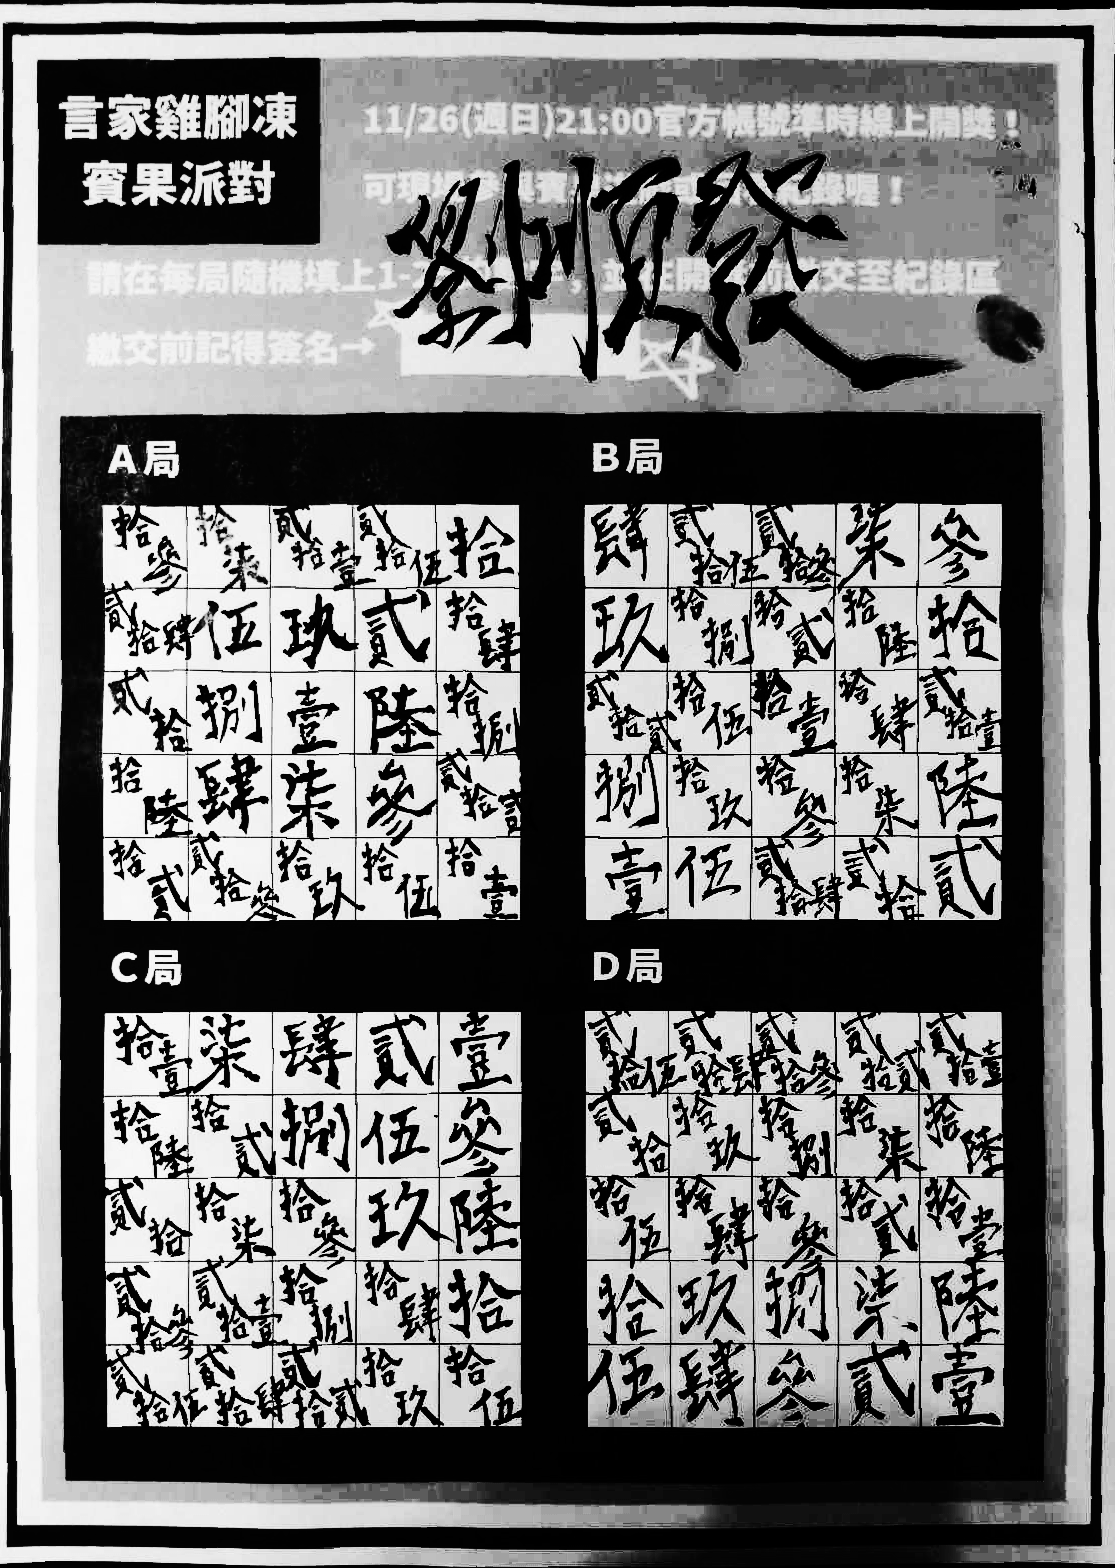 言家雞腳凍
賓果派對
11/26(週日)21:00官方帳號準時線上開獎！
可現場
紀錄喔！
劉順發
請在每局隨機填上1-
交至紀錄區
繳交前記得簽名→
A局
拾參 拾柒 貳拾壹 貳拾伍 拾
貳拾肆 伍 玖 貳 拾肆
貳拾 捌 壹 陸 拾捌
拾陸 肆 柒 參 貳拾貳
拾貳 貳拾參 拾玖 拾伍 拾壹
B局
肆 貳拾伍 貳拾參 柒 參
玖 拾捌 拾貳 拾陸 拾
貳拾貳 拾伍 拾壹 拾肆 貳拾壹
捌 拾玖 拾參 拾柒 陸
壹 伍 貳拾肆 貳拾 貳
C局
拾壹 柒 肆 貳 壹
拾陸 拾貳 捌 伍 參
貳拾 拾柒 拾參 玖 陸
貳拾參 貳拾壹 拾捌 拾肆 拾
貳拾伍 貳拾肆 貳拾貳 拾玖 拾伍
D局
貳拾伍 貳拾肆 貳拾參 貳拾貳 貳拾壹
貳拾 拾玖 拾捌 拾柒 拾陸
拾伍 拾肆 拾參 拾貳 拾壹
拾 玖 捌 柒 陸
伍 肆 參 貳 壹